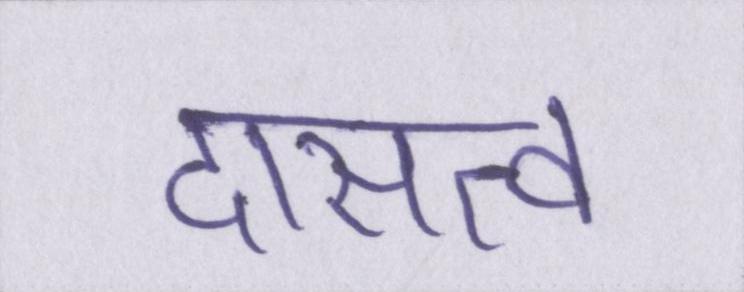 दासत्व